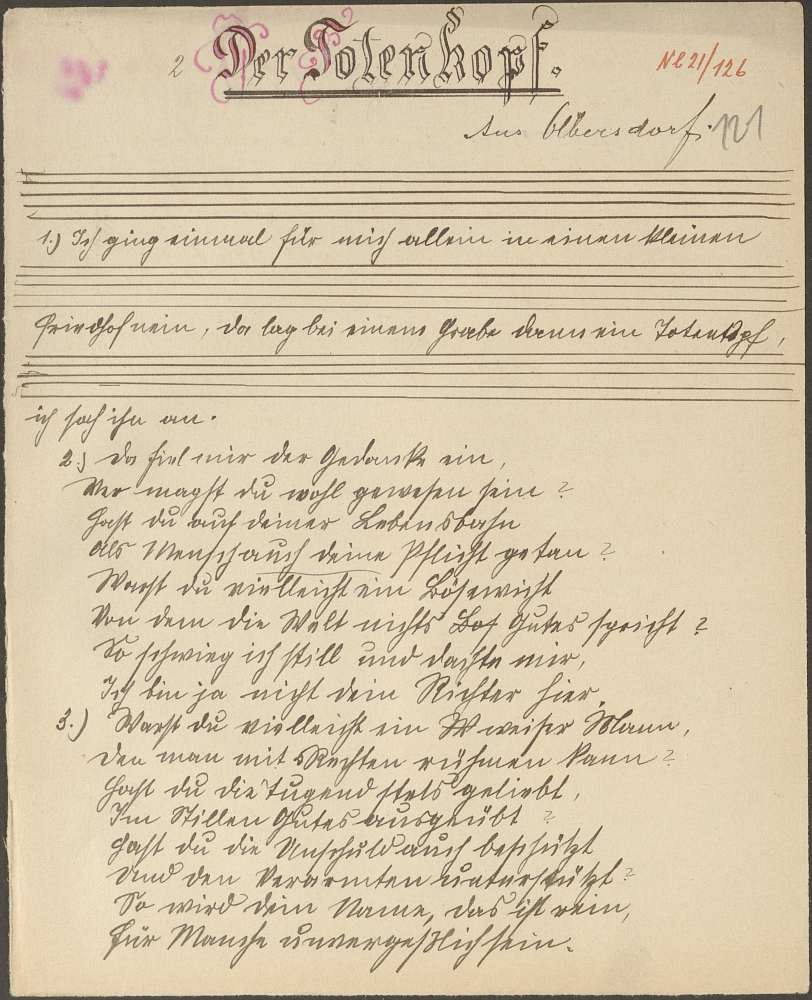 2 Der Totenkopf.
Nl 21/126
Aus Olbersdorf. 121
1.) Ich ging einmal für mich allein in einen kleinen
Friedhof nein, da lag bei einem Grabe dann ein Totenkopf,
ich sah ihn an.
2.) Da fiel mir der Gedanke ein,
Wer magst du wohl gewesen sein?
Hast du auf deiner Lebensbahn
Als Mensch auch deine Pflicht getan?
Warst du vielleicht ein Bösewicht
Von dem die Welt nichts Gutes spricht?
So schwieg ich still und dachte mir,
Ich bin ja nicht dein Richter hier.
3.) Warst du vielleicht ein weiser Mann,
Den man mit Rechten rühmen kann?
Hast du die Tugend stets geliebt,
Im Stillen Gutes ausgeübt?
Hast du die Unschuld auch beschützt
Und den Verarmten unterstützt?
So wird dein Name, das ist rein,
Für Manche unvergeßlich sein.